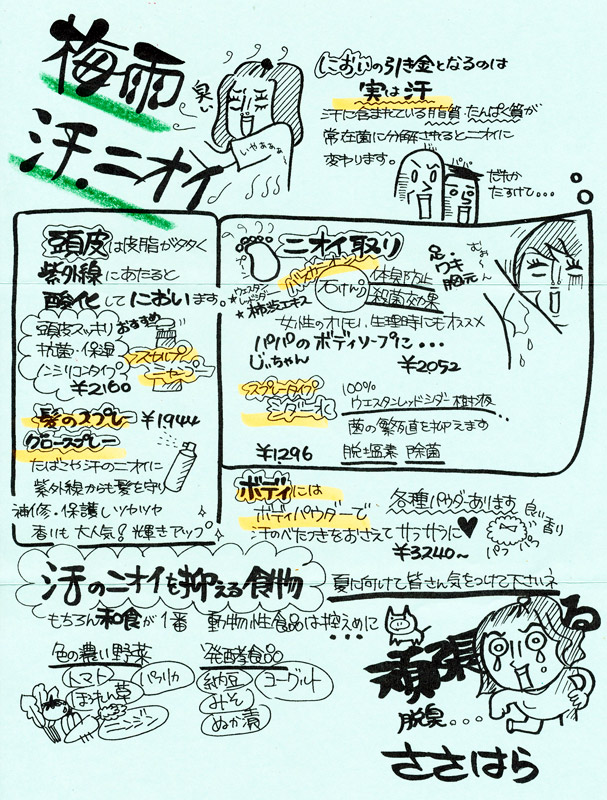 梅雨
汗.ニオイ
臭い
いやぁぁぁ〜
においの引き金となるのは
実は汗
汗に含まれている脂質・たんぱく質が
常在菌に分解されるとニオイに
変わります。
パパ
だれか
たすけて・・・
頭皮は皮脂が多く
紫外線にあたると
酸化してにおいます。
頭皮スッキリ おすすめ
抗菌・保湿
ノンシリコンタイプ
¥2160
髪のスプレー ¥1944
グロースプレー
たばこや汗のニオイに
紫外線からも髪を守り
補修・保護しツヤツヤ
香りも大人気！輝きアップ
ニオイ取り
プーン
石けん
体臭防止
殺菌効果
★ウエスタンレッドシダー
★柿渋エキス
足
ワキ
胸元
女性のオモイ、生理時にもオススメ
パパのボディソープに・・・
じぃちゃん ¥2052
スプレータイプ
シダー水
100%
ウエスタンレッドシダー樹液
菌の繁殖を抑えます
¥1296 脱塩素 除菌
ボディには
ボディパウダーで
各種パウダーあります
汗のべたつきをおさえてサラサラに♥
¥3240〜
良い香り
パフパフ
汗のニオイを抑える食物
夏に向けて皆さん気をつけて下さいネ
もちろん和食が1番 動物性食品は控えめに・・・
色の濃い野菜
トマト
パプリカ
ほうれん草
ニンジン
発酵食品
納豆
ヨーグルト
みそ
ぬか漬
頑張る
脱臭・・・
ささはら